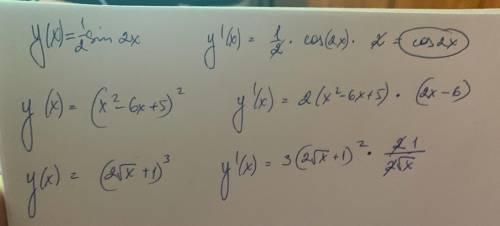 y(x) = 1/2 sin 2x y'(x) = 1/2 · cos(2x) · 2 = cos2x
y(x) = (x² - 6x + 5)² y'(x) = 2(x² - 6x + 5) · (2x - 6)
y(x) = (2√x + 1)³ y'(x) = 3(2√x + 1)² · 2 1/2√x